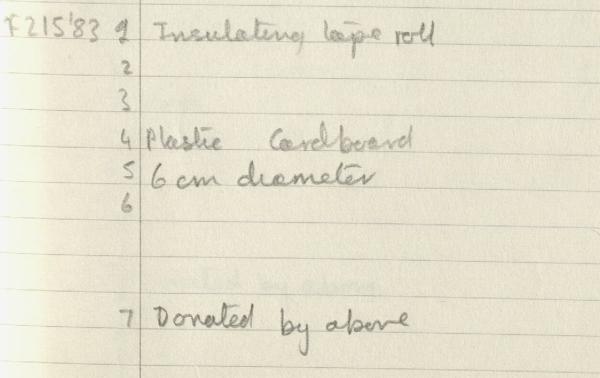 F215'83 1 Insulating tape roll
2
3
4 Plastic Cardboard
5 6 cm diameter
6
7 Donated by above